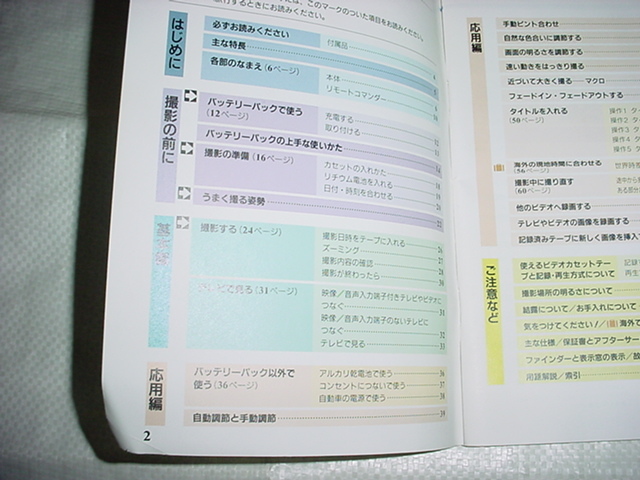 このマークのついた項目をお読みください。
はじめに
必ずお読みください
付属品
主な特長
各部のなまえ(6ページ)
本体
リモートコマンダー
撮影の前に
バッテリーパックで使う
(12ページ)
充電する
取り付ける
バッテリーパックの上手な使いかた
撮影の準備(16ページ)
カセットの入れかた
リチウム電池を入れる
日付・時刻を合わせる
うまく撮る姿勢
22
撮影する(24ページ)
撮影日時をテープに入れる 26
ズーミング 27
撮影内容の確認 28
撮影が終わったら 30
テレビで見る(31ページ)
映像/音声入力端子付きテレビやビデオに
つなぐ 31
映像/音声入力端子のないテレビに
つなぐ 32
テレビで見る 33
応用編
バッテリーパック以外で
使う(36ページ)
アルカリ乾電池で使う 36
コンセントにつないで使う 37
自動車の電源で使う 38
自動調節と手動調節 39
2
応用編
手動ピント合わせ
自然な色合いに調節する
画面の明るさを調節する
速い動きをはっきり撮る
近づいて大きく撮る──マクロ
フェードイン・フェードアウトする
タイトルを入れる
(50ページ)
操作1
操作2
操作3
操作4
操作5
海外の現地時間に合わせる
(56ページ)
世界時
撮影中に撮り直す
(60ページ)
他のビデオへ録画する
テレビやビデオの画像を録画する
記録済みテープに新しく画像を挿入
ご注意など
使えるビデオカセットテー
プと記録・再生方式について
記録
再生
撮影場所の明るさについて
結露について/お手入れについて
気をつけてください/海外で
主な仕様/保証書とアフターサー
ファインダーと表示窓の表示/故
用語解説/索引